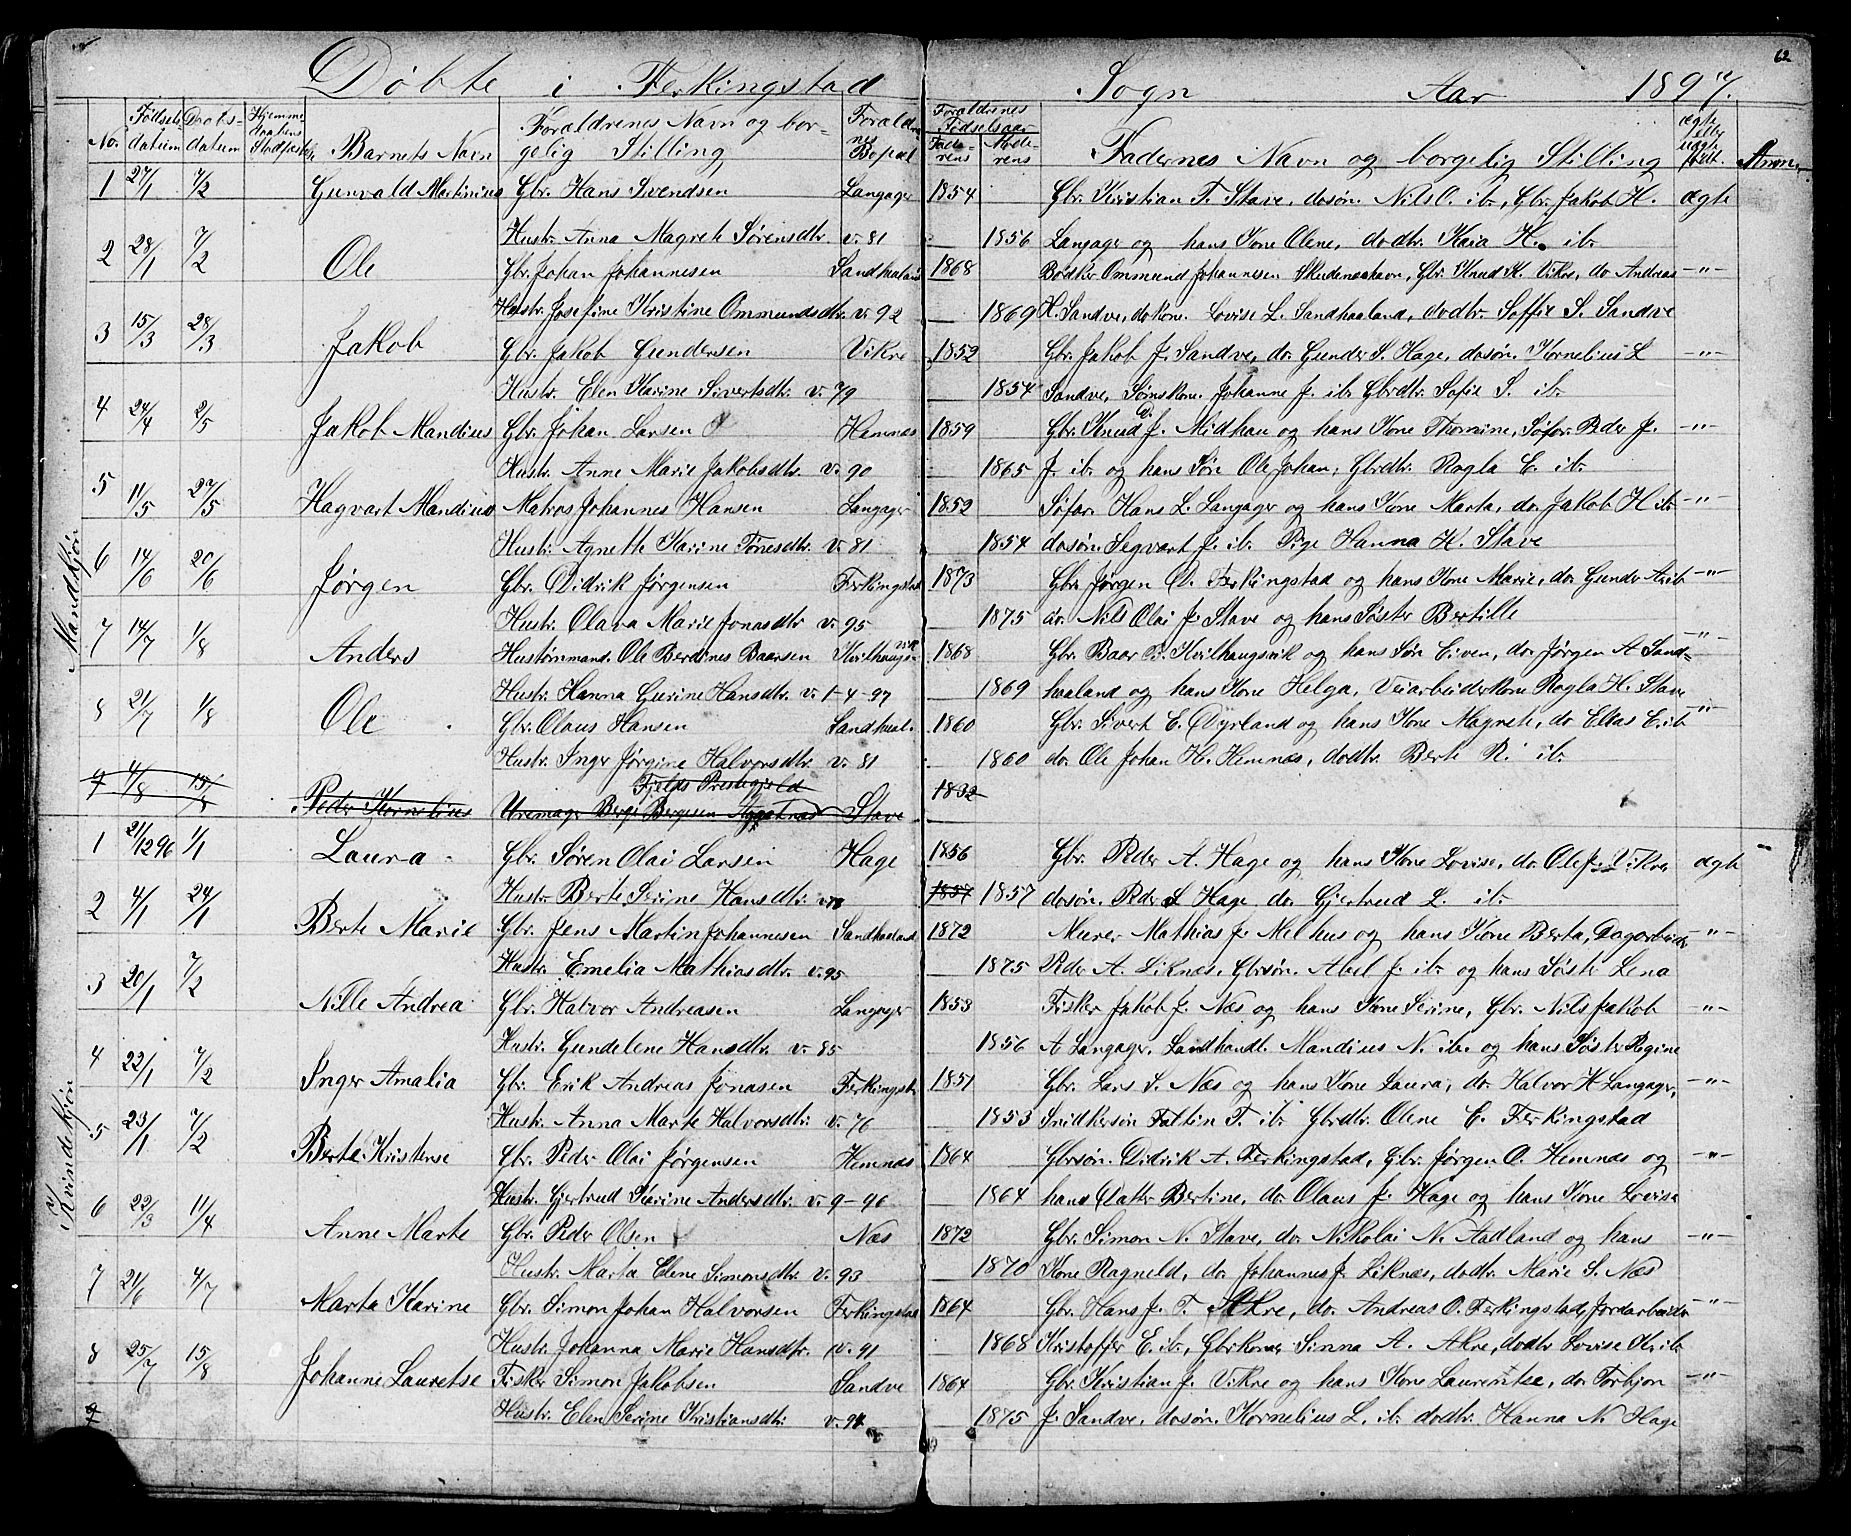 62
Døbte i Ferkingstad Sogn Aar 1897.
No. Fødsels datum Daabs- datum Hjemme daabens Stadfæstelse Barnets Navn Forældrenes Navn og bor- gelig Stilling Forældre nes Bopæl Forældrenes Fødselsaar Fade- rens Mode- rens Fadernes Navn og borgelig Stilling ægte eller uægte født. Anm.
Mandkjøn
1 27/1 7/2 Gunvald Martinius Gbr. Hans Svendsen Langager 1854 Gbr. Kristian T. Stave, dosøn. Nils O. ib., Gbr. Jakob H. ægte
Hustr. Anna Magrete Sørensdtr. v. 81 1856 Langager og hans Kone Olene, dodtr. Kaia H. ib.
2 28/1 7/2 Ole Gbr. Johan Johannesen Sandhaaland 1868 Bødker Ommund Johannesen Skudeneshavn, Gbr. Knud K. Vikre, do Andreas -"-
Hustr. Josefine Kristine Ommundsdtr. v. 92 1869 H. Sandve, do Kone. Lovise L. Sandhaaland, dodtr. Soffie S. Sandve
3 15/3 28/3 Jakob Gbr. Jakob Gundersen Vikre 1852 Gbr. Jakob J. Sandve, do. Gunder S. Hage, dosøn. Kornelius L -"-
Hustr. Elen Karine Sivertsdtr. v. 79 1854 Sandve, Sømskone. Johanne J. ib. Gbrdtr. Sofie S. ib.
4 24/4 2/5 Jakob Mandius Gbr. Johan Larsen Hemnæs 1859 Gbr. Knud J. Midhau og hans Kone Thomine, Søfar. Peder J. -"-
Hustr. Anne Marie Jakobsdtr. v. 90 1865 J. ib. og hans Søn Ole Johan, Gbrdtr. Ragla E. ib.
5 11/5 27/5 Hagvart Mandius Matros Johannes Hansen Langager 1852 Søfar. Hans L. Langager og hans Kone Marta, do. Jakob H ib. -"-
Hustr. Agnette Karine Tønesdtr. v. 81 1854 dosøn. Segvart J. ib. Pige Hanna K. Stave
6 14/6 20/6 Jørgen Gbr. Didrik Jørgensen Ferkingstad 1873 Gbr. Jørgen D. Ferkingstad og hans Kone Marie, do. Gundr A. ib -"-
Hustr. Olava Marie Jonasdtr v. 95 1875 do. Nils Olai J. Stave og hans Søster Bertille
7 14/7 1/8 Anders Hustømmand. Ole Berdines Baarsen Kvilhaugsvik 1868 Gbr. Baar T. Kvilhaugsvik og hans Søn Eiven, do. Jørgen A Sand= -"-
Hustr. Hanna Gurine Hansdtr. v. 1-4-97 1869 haaland og hans Kone Helga, Veiarbeiderkone Ragla H. Stave
8 21/7 1/8 Ole Gbr. Olaus Hansen Sandhaal. 1860 Gbr. Sivert E. Dyrland og hans Kone Magrete, do Elias E. ib. -"-
Hustr. Inger Jørgine Halvorsdtr. v. 81 1860 do. Ole Johan H. Hemnæs, dodtr. Berte R. ib.
9 4/8 15/8 Peder Kornelius Uremager Berge Bergesen Fjelds Prestegjeld Stave 1832
Kvindekjøn
1 21/12 96 1/1 Laura Gbr. Søren Olai Larsen Hage 1856 Gbr. Peder A. Hage og hans Kone Lovise, do. Ole J. Vikre ægte
Hustr. Berte Serine Hansdtr. v. 78 1857 1857 dosøn. Peder L Hage do. Gjertrud L. ib.
2 4/1 24/1 Berte Marie Gbr. Jens Martin Johannesen Sandhaaland 1872 Murer Mathias J. Melhus og hans Kone Berta, Dagarbeider -"-
Hustr. Emelia Mathiasdtr. v. 95 1875 Peder A. Liknæs, Gbrsøn. Abel J. ib. og hans Søster Lena
3 20/1 7/2 Nille Andrea Gbr. Halvor Andreasen Langager 1853 Fisker Jakob J. Næs og hans Kone Serine, Gbr. Nils Jakob -"-
Hustr. Gundelene Hansdtr. v. 85 1856 A Langager, Landhandl. Mandius N. ib. og hans Søster Regine
4 22/1 7/2 Inger Amalia Gbr. Erik Andreas Jonasen Ferkingstad 1851 Gbr. Lars S. Næs og hans Kone Laura, do. Halvor H Langager, -"-
Hustr. Anna Marte Halvorsdtr. v. 76 1853 Snidkersøn Faltin T. ib. Gbrdtr. Olene E. Ferkingstad
5 23/1 7/2 Berte Kristense Gbr. Peder Olai Jørgensen Hemnæs 1864 Gbrsøn. Didrik A. Ferkingstad, Gbr. Jørgen O. Hemnæs og -"-
Hustr. Gjertrud Karine Andersdtr. v. 9-96 1864 hans Datter Bertine, do. Olaus J. Hage og hans Kone Lovise
6 22/3 11/4 Anne Marte Gbr. Peder Olsen Næs 1872 Gbr. Simon N. Stave, do. Nikolai N. Aadland og hans -"-
Hustr. Marta Elene Simonsdtr. v. 93 1870 Kone Ragneld, do. Johannes J. Liknæs, dodtr. Marie S. Næs
7 21/6 4/7 Marta Karine Gbr. Simon Johan Halvorsen Ferkingstad 1864 Gbr. Hans J. T. Akre, do. Andreas O. Ferkingstad, Jordarbeider -"-
Hustr. Johanna Marie Hansdtr. v. 91 1868 Kristoffer E. ib., Gbrkone Sinna A. Akre, dodtr. Lovise K. ib.
8 25/7 15/8 Johanne Lauretse Fisker Simon Jakobsen Sandve 1864 Gbr. Kristian J. Vikre og hans Kone Laurentse, do. Torbjørn -"-
Hustr. Elen Serine Kristiansdtr. v. 94 1875 J. Sandve, dosøn. Kornelius L. ib. dodtr. Hanna N. Hage
9